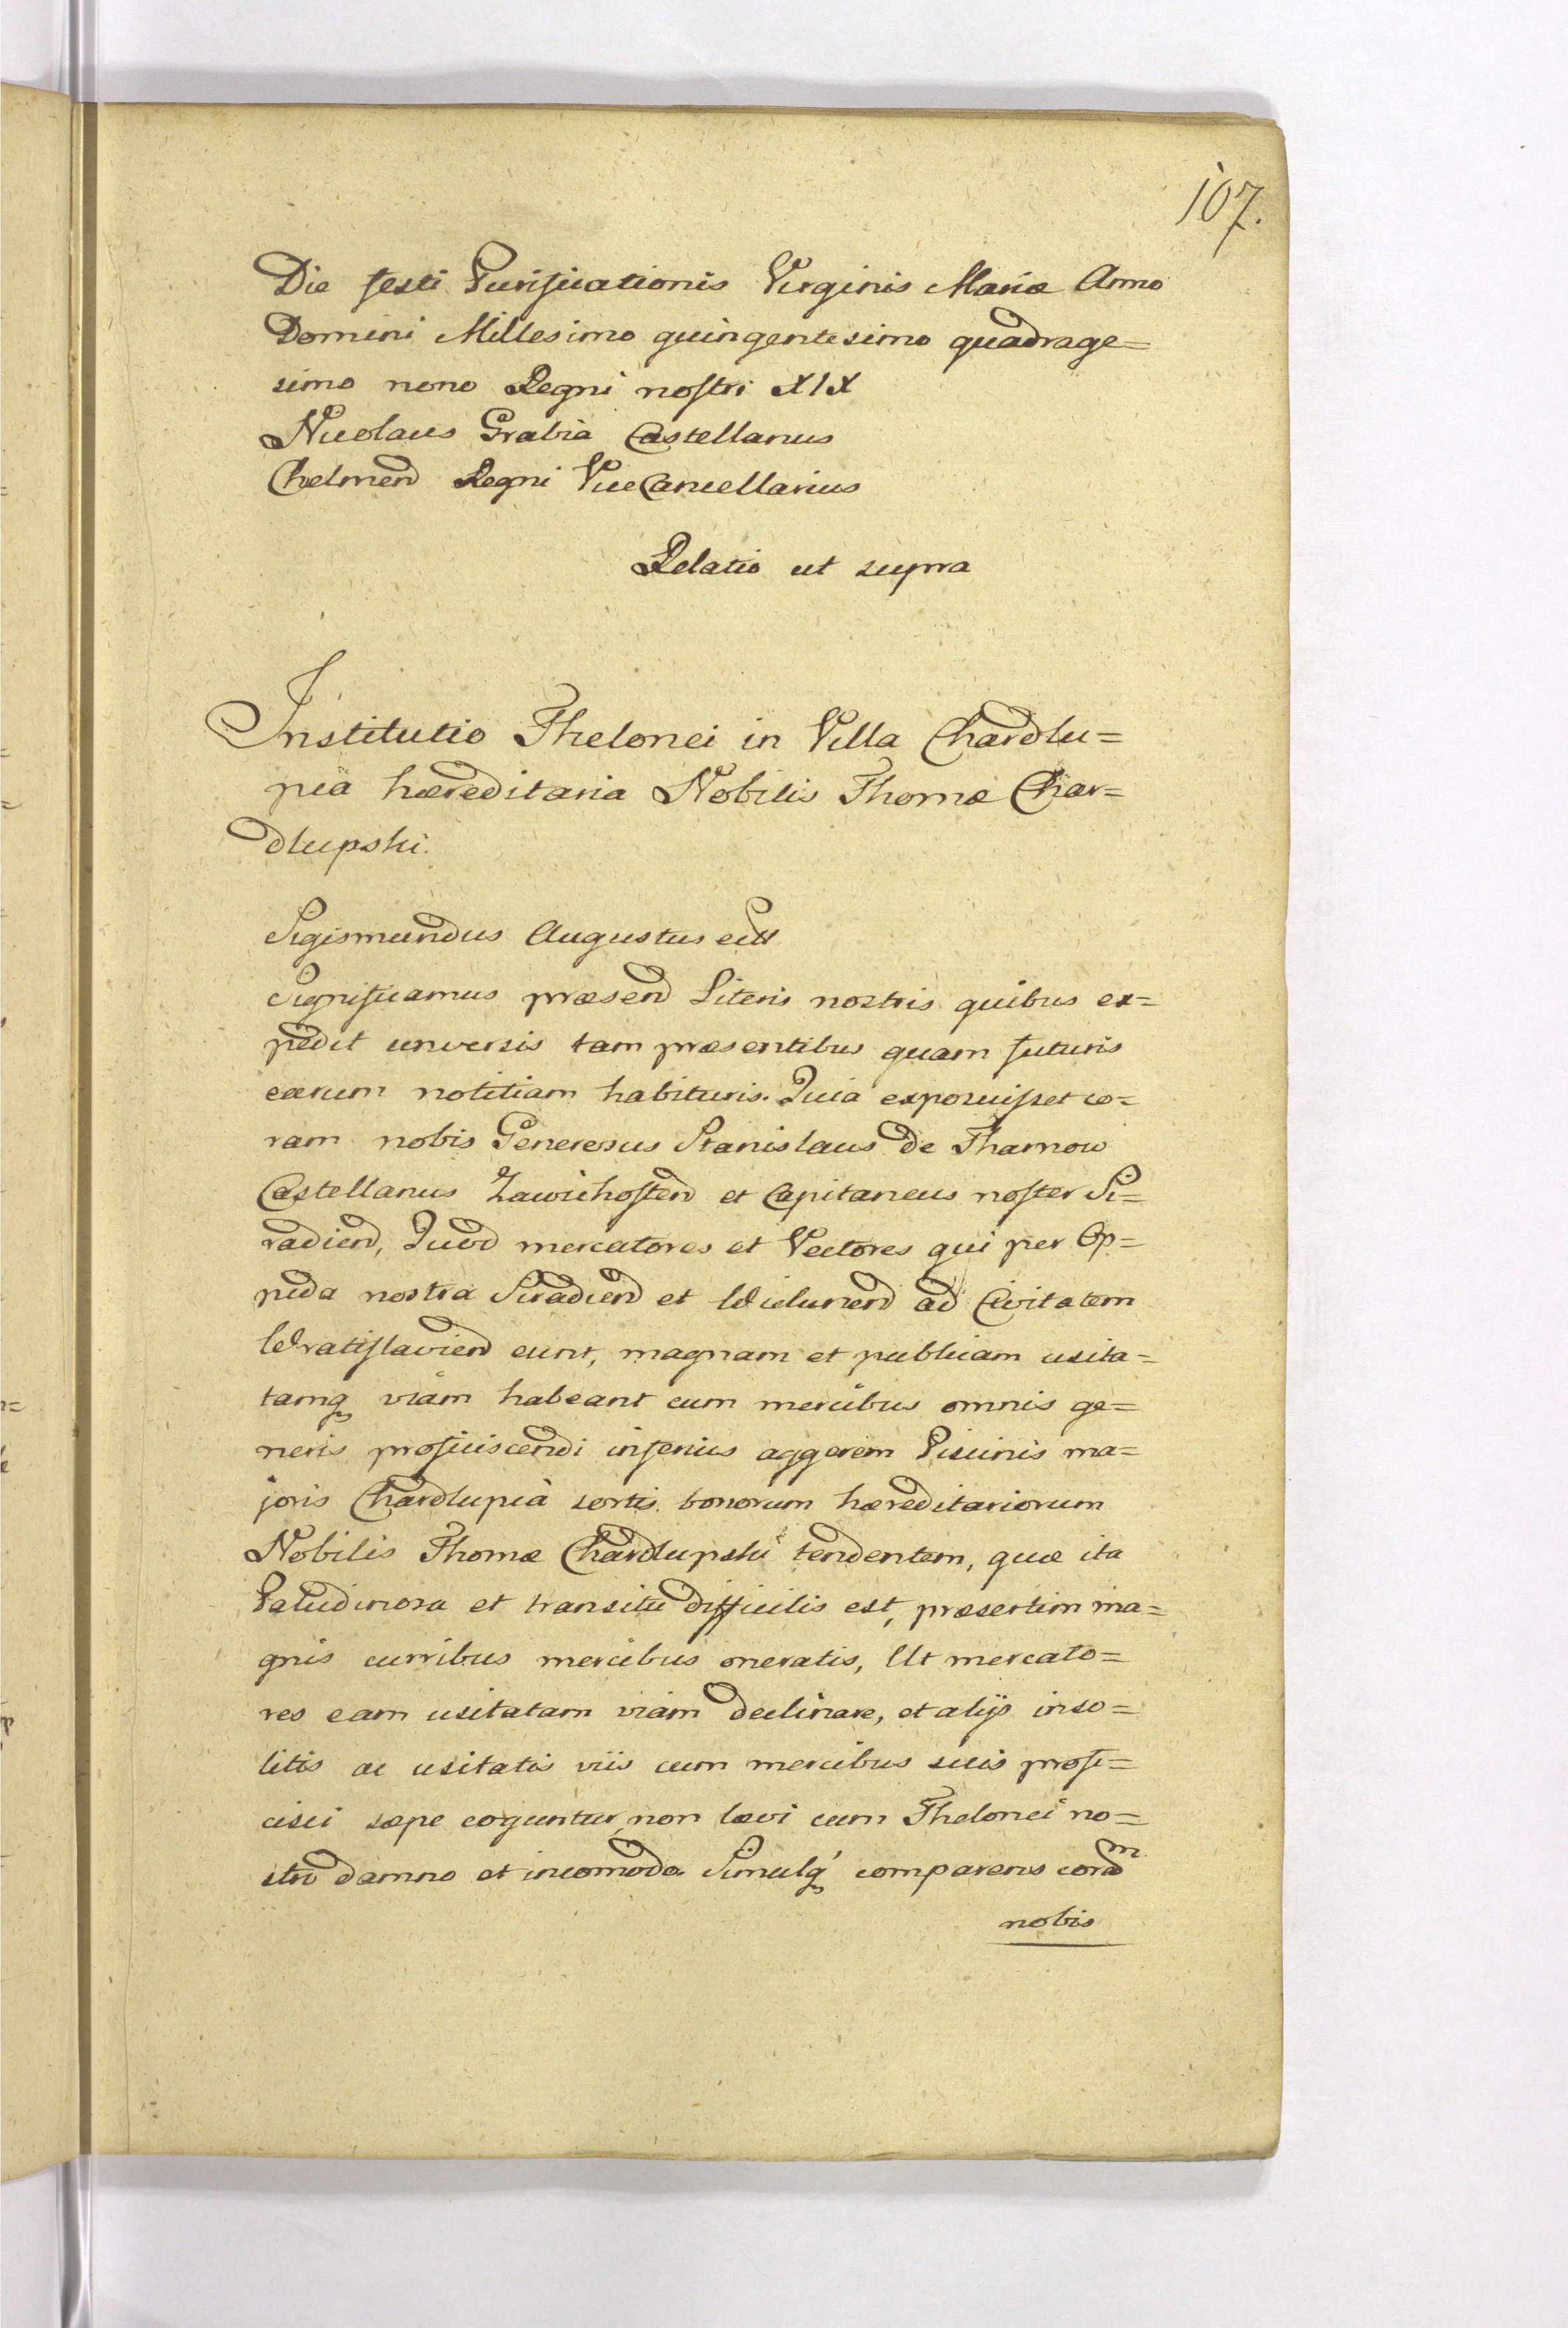 107.
Die festi Purificationis Virginis Mariæ Anno
Domini Millesimo quingentesimo quadrage=
simo nono Regni nostri XIX
Nicolaus Grabia Castellanus
Chelmen̄ Regni ViceCancellarius
Relatio ut supra
Institutio Thelonei in Villa Chardlu=
pia hæreditaria Nobilis Thomæ Char=
dlupski.
Sigismundus Augustus ect
Significamus præsen̄ Literis nostris quibus ex=
pedit universis tam præsentibus quam futuris
earum notitiam habituris. Quia exposuisset co=
ram nobis Generosus Stanislaus de Tharnow
Castellanus Zawichosten̄ et Capitaneus noster Si=
radien̄, Quod mercatores et Vectores qui per Op=
pida nostra Siradien̄ et Wielunen̄ ad Civitatem
Wratislavien̄ eunt, magnam et publicam usita=
tamq viam habeant cum mercibus omnis ge=
neris proficiscendi inferius aggerem Piscinis ma=
joris Chardlupia sortis bonorum hæreditariorum
Nobilis Thomæ Chardlupski tendentem, quæ ita
Paludinosa et transitu difficilis est, præsertim ma=
gnis curribus mercibus oneratis, Ut mercato=
res eam usitatam viam declinare, et alijs inso=
litis ac usitatis viis cum mercibus suis profi=
cisci sæpe coguntur, non lævi cum Thelonei no=
stri damno et incomodo Simulq comparens coram
nobis